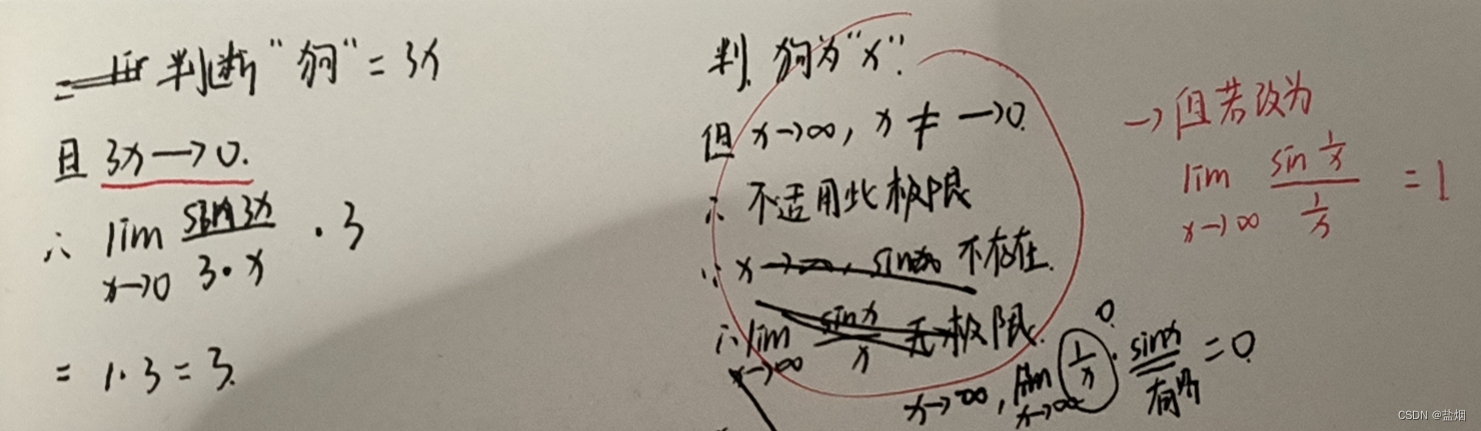 判断“狗”= 3x
且 3x→0.
∴ lim x→0 sin3x / 3·x · 3
= 1·3 = 3.
判 狗为“x”.
但 x→∞, x ≠ →0.
∴ 不适用此极限
∵ x→∞, sin∞ 不存在.
∴ lim x→∞ sinx / x 无极限.
x→∞, lim x→∞ 1/x · sinx = 0
0
有界
→但若改为
lim x→∞ sin 1/x / 1/x = 1
CSDN @盐烟